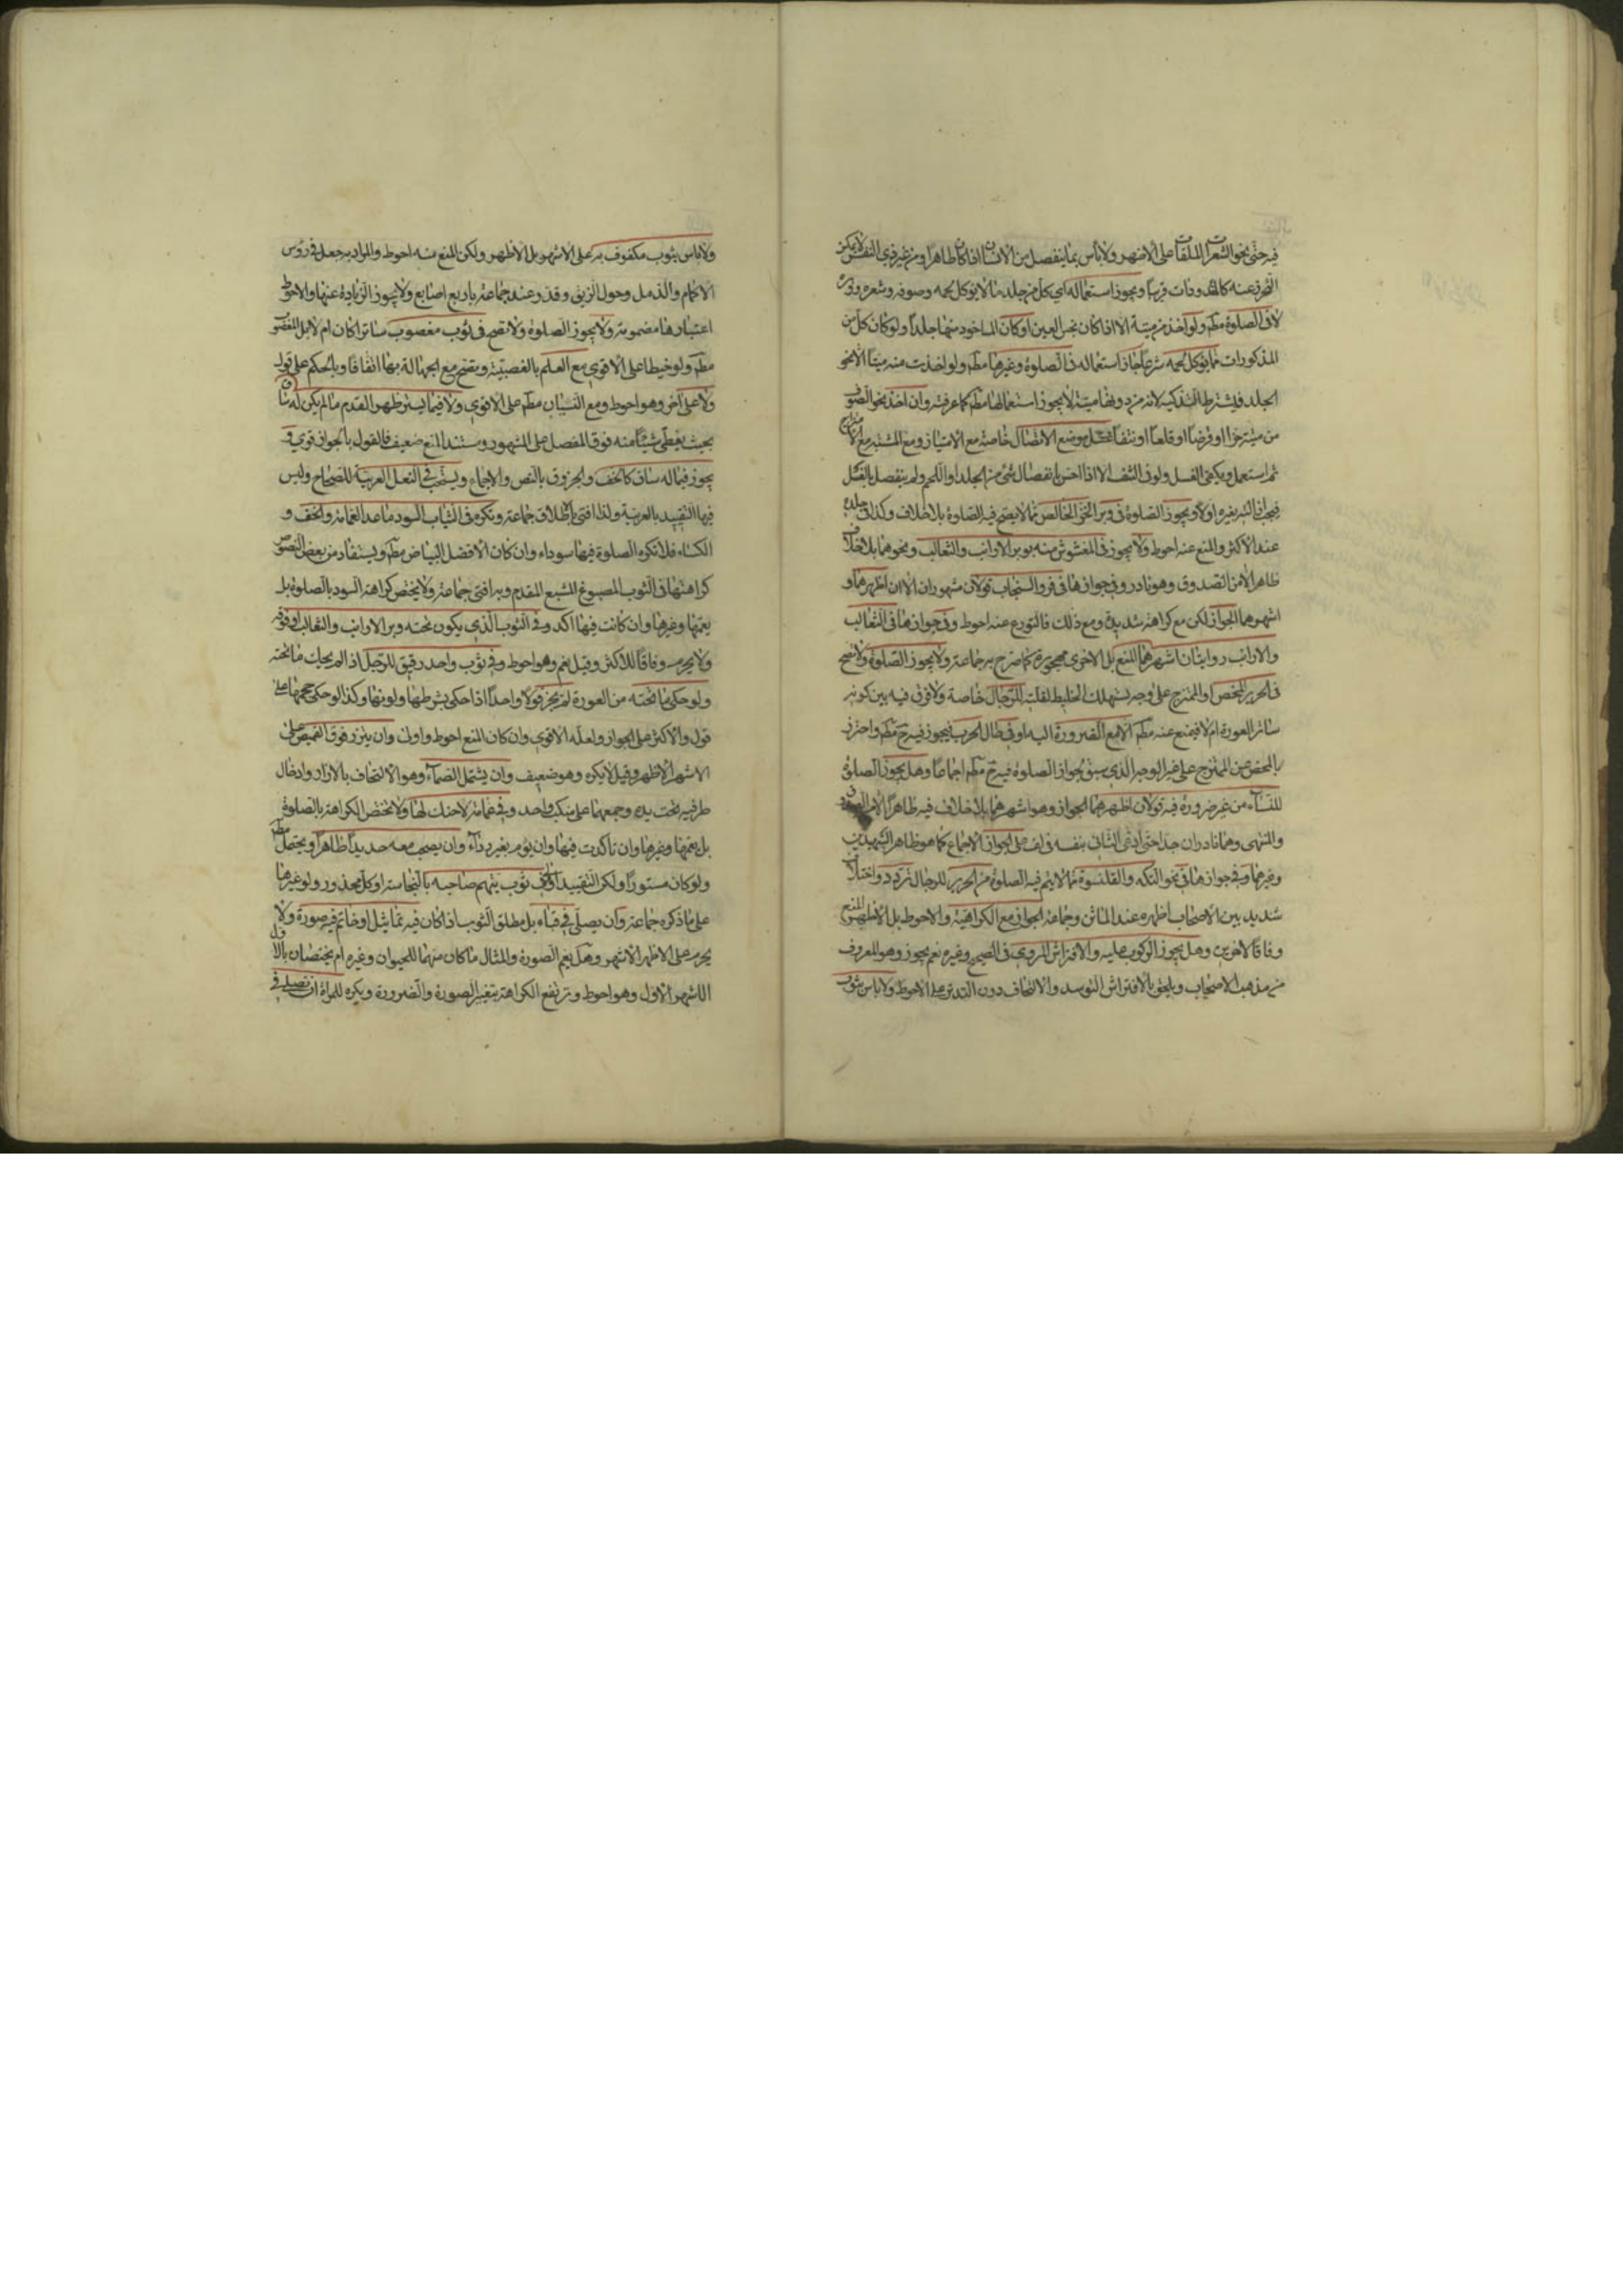 فيه حتى نحو الشعرات الملقات على الأشهر ولا بأس بما ينفصل من الانسان اذا كان طاهرا ومن غير ذي النفس لا يمكن
التحرز عنه كالقمل ودات قريبا ويجوز استعماله اي كل من جلد ما لا يؤكل لحمه وصوفه وشعره ووبره
لا في الصلوة مطم ولو اخذ من ميتة الا اذا كان نجس العين او كان الماخوذ منها جلدا ولو كان كل من
المذكورات مما يؤكل لحمه شرعا جاز استعماله في الصلوة وغيرها مطم ولو اخذت منه ميتا الا نحو
الجلد فيشترط التذكية لانه من دونها ميتة لا يجوز استعمالها مطم كما عرفته وان اخذ نحو الصوف
من ميتة جزا او قرضا او قلعا او نتفا غسل موضع الاتصال خاصة مع الامتياز ومع المشتبه مع
ثم استعمل ويكفي الغسل ولو في النتف الا اذا احس بانفصال شئ من الجلد او اللحم ولم ينفصل بالغسل
فيجب ازالته بغيره اولا ويجوز الصلوة في وبر الخز الخالص مما لا يصح فيه الصلوة بلا خلاف وكذا في جلده
عند الاكثر والمنع عنه احوط ولا يجوز في المغشوش منه بوبر الارانب والثعالب ونحوهما بلا خلاف
ظاهر الا من الصدوق وهو نادر وفي جوازها في فرو السنجاب قولان مشهوران الا ان اظهرهما و
اشهرهما الجواز لكن مع كراهة شديدة ومع ذلك فالتورع عنه احوط وفي جوازها في الثعالب
والارانب روايتان اشهرهما المنع بل الاخرى مهجورة كما صرح به جماعة ولا يجوز الصلوة ولا تصح
في الحرير المحض او الممتزج على وجه يستهلك الخليط لقلته للرجال خاصة ولا فرق فيه بين كونه
ساتر العورة ام لا فيمنع عنه مطم الا مع الضرورة اليه او في حال الحرب فيجوز فيه ح مطم واحترز
بالمحض عن الممتزج على غير الوجه الذي سبق لجواز الصلوة فيه ح مطم اجماعا وهل يجوز الصلوة
للنساء من غير ضرورة فيه قولان اظهرهما الجواز وهو اشهرهما بلا خلاف فيه ظاهرا الا من الصدوق
والمنتهى وهما نادران جدا حتى ادعى الثاني بنفسه في لف على الجواز الاجماع كما هو ظاهر الشهيدين
وغيرهما وفي جوازها في نحو التكة والقلنسوة مما لا يتم فيه الصلوة من الحرير للرجال تردد واختلاف
شديد بين الاصحاب اظهره عند الماتن وجماعة الجواز مع الكراهية والاحوط بل الاظهر المنع
وفاقا لاخرين وهل يجوز الركوب عليه والافتراش المروي في الصحيح وغيره نعم يجوز وهو المعروف
من مذهب الاصحاب ويلحق بالافتراش التوسد والالتحاف دون التدثر على الاحوط ولا باس بثوب
ولا باس بثوب مكفوف به على الاشهر بل الاظهر ولكن المنع منه احوط والمراد به جعل في رؤس
الاكمام والذيل وحول الزيق وقدر عند جماعة باربع اصابع ولا يجوز الزيادة عنها والاحوط
اعتبارها مضمومة ولا يجوز الصلوة ولا تصح في ثوب مغصوب ساترا كان ام لا بل المغصوب
مطم ولو خيطا على الاقوى مع العلم بالغصبية وتصح مع الجهالة بها اتفاقا وبالحكم على قول
ولا على اخر وهو احوط ومع النسيان مطم على الاقوى ولا فيما يستر ظهر القدم ما لم يكن له ساق
بحيث يغطي شيئا منه فوق المفصل على المشهور ومستند المنع ضعيف فالقول بالجواز قوي و
يجوز فيما له ساق كالخف والجرموق بالنص والاجماع ويستحب في النعل العربية للصحاح وليس
فيها التقييد بالعربية ولذا افتى باطلاق جماعة وتكره في الثياب السود ما عدا العمامة والخف و
الكساء فلا تكره الصلوة فيها سوداء وان كان الافضل البياض مطم ويستفاد من بعض النصوص
كراهتها في الثوب المصبوغ المشبع المقدم وبه افتى جماعة ولا يختص كراهة السود بالصلوة بل
يعمها وغيرها وان كانت فيها اكد وفي الثوب الذي يكون تحته وبر الارانب والثعالب او فوقه
ولا يحرم وفاقا للاكثر وقيل نعم وهو احوط وفي ثوب واحد رقيق للرجل اذا لم يحك ما تحته
ولو حكى ما تحته من العورة لم يجز قولا واحدا اذا حكى بشرطها ولونها وكذا لو حكى حجمها على
قول والاكثر على الجواز ولعله الاقوى وان كان المنع احوط واولى وان يتزر فوق القميص على
الاشهر الاظهر وقيل لا يكره وهو ضعيف وان يشتمل الصماء وهو الالتحاف بالازار وادخال
طرفيه تحت يده وجمعهما على منكب واحد وفي عمامة لا حنك لها ولا تختص الكراهة بالصلوة
بل تعمها وغيرها وان تاكدت فيها وان يؤم بغير رداء وان يصحب معه حديدا ظاهرا ويحتمل مطم
ولو كان مستورا ولكن التقييد اولى وفي ثوب يتهم صاحبه بالنجاسة او كل محذور ولو غيرها
على ما ذكره جماعة وان يصلي في قباء بل مطلق الثوب اذا كان فيه تماثيل او خاتم فيه صورة ولا
يحرم على الاظهر الاشهر وهل يعم الصورة والمثال ما كان منهما للحيوان وغيره ام يختصان بالاول
الاشهر الاول وهو احوط وترتفع الكراهة بتغيير الصورة والضرورة ويكره للمراة ان تصلي في